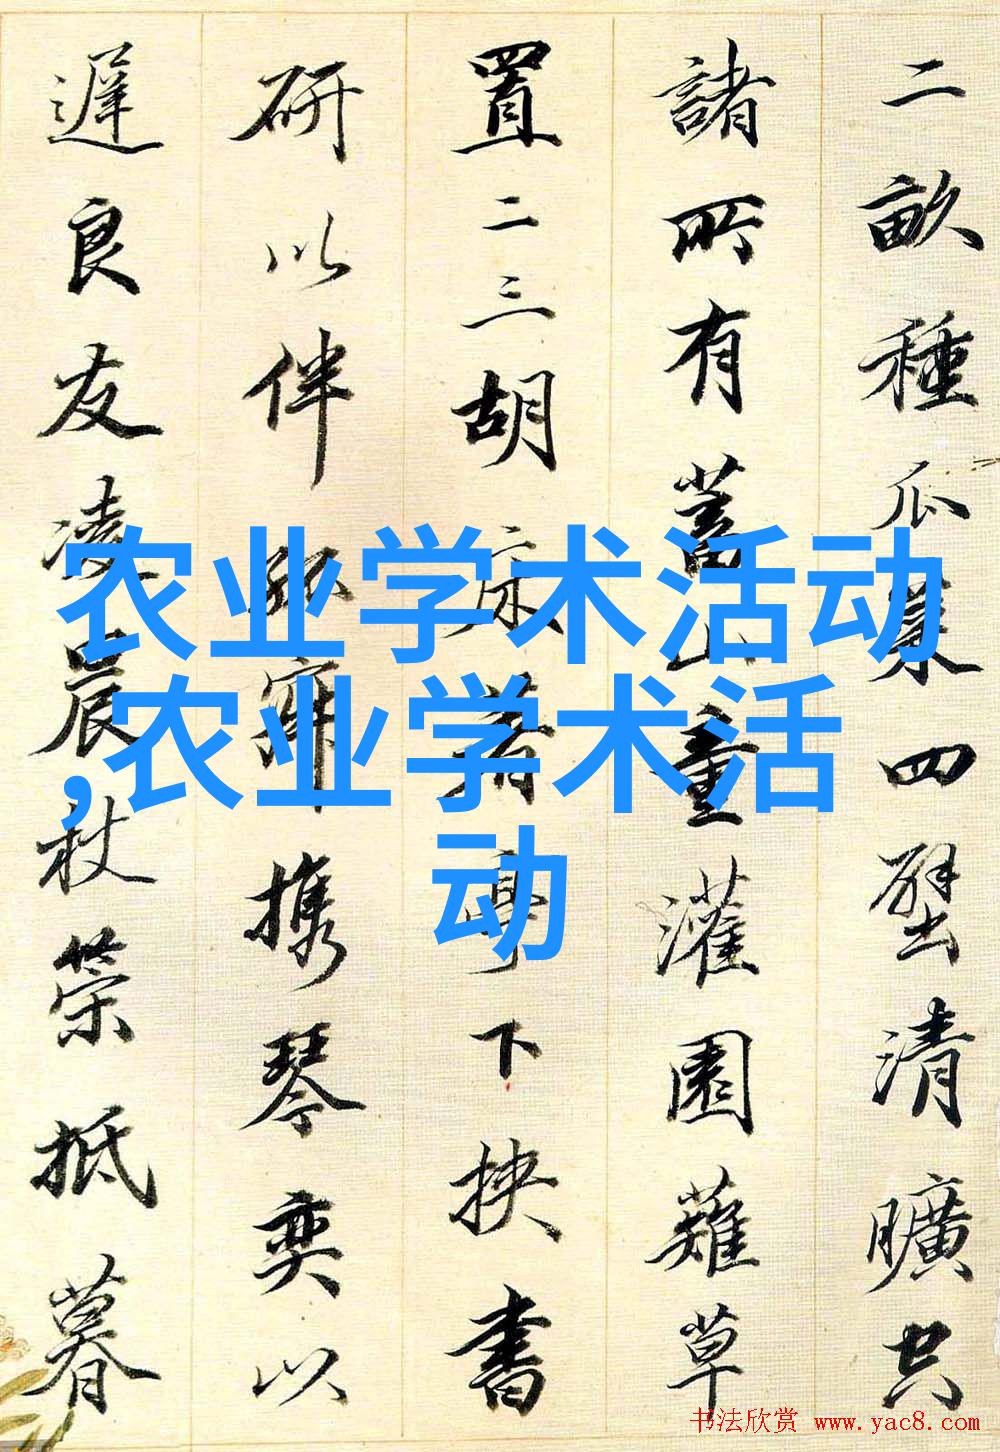 二畝種瓜四壁清曠空
諸所有蓄山童灌園薙草
置二三胡床着亭下挾書
研以伴孤寂攜琴奕以
遲良友凌晨杖策抵暮
农业学术活动
,农业学术活
动
书法欣赏 www.yac8.com